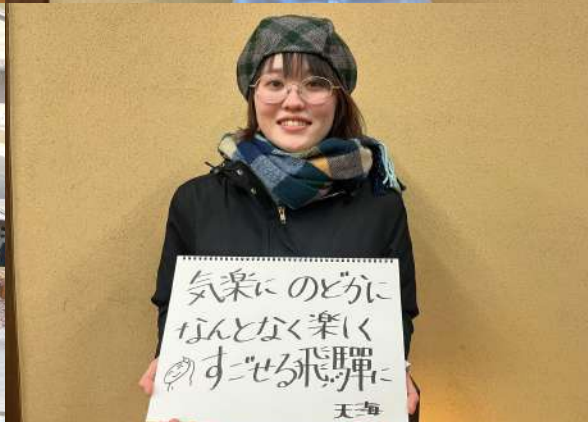 気楽に のどかに
なんとなく楽しく
すごせる飛騨に
天海